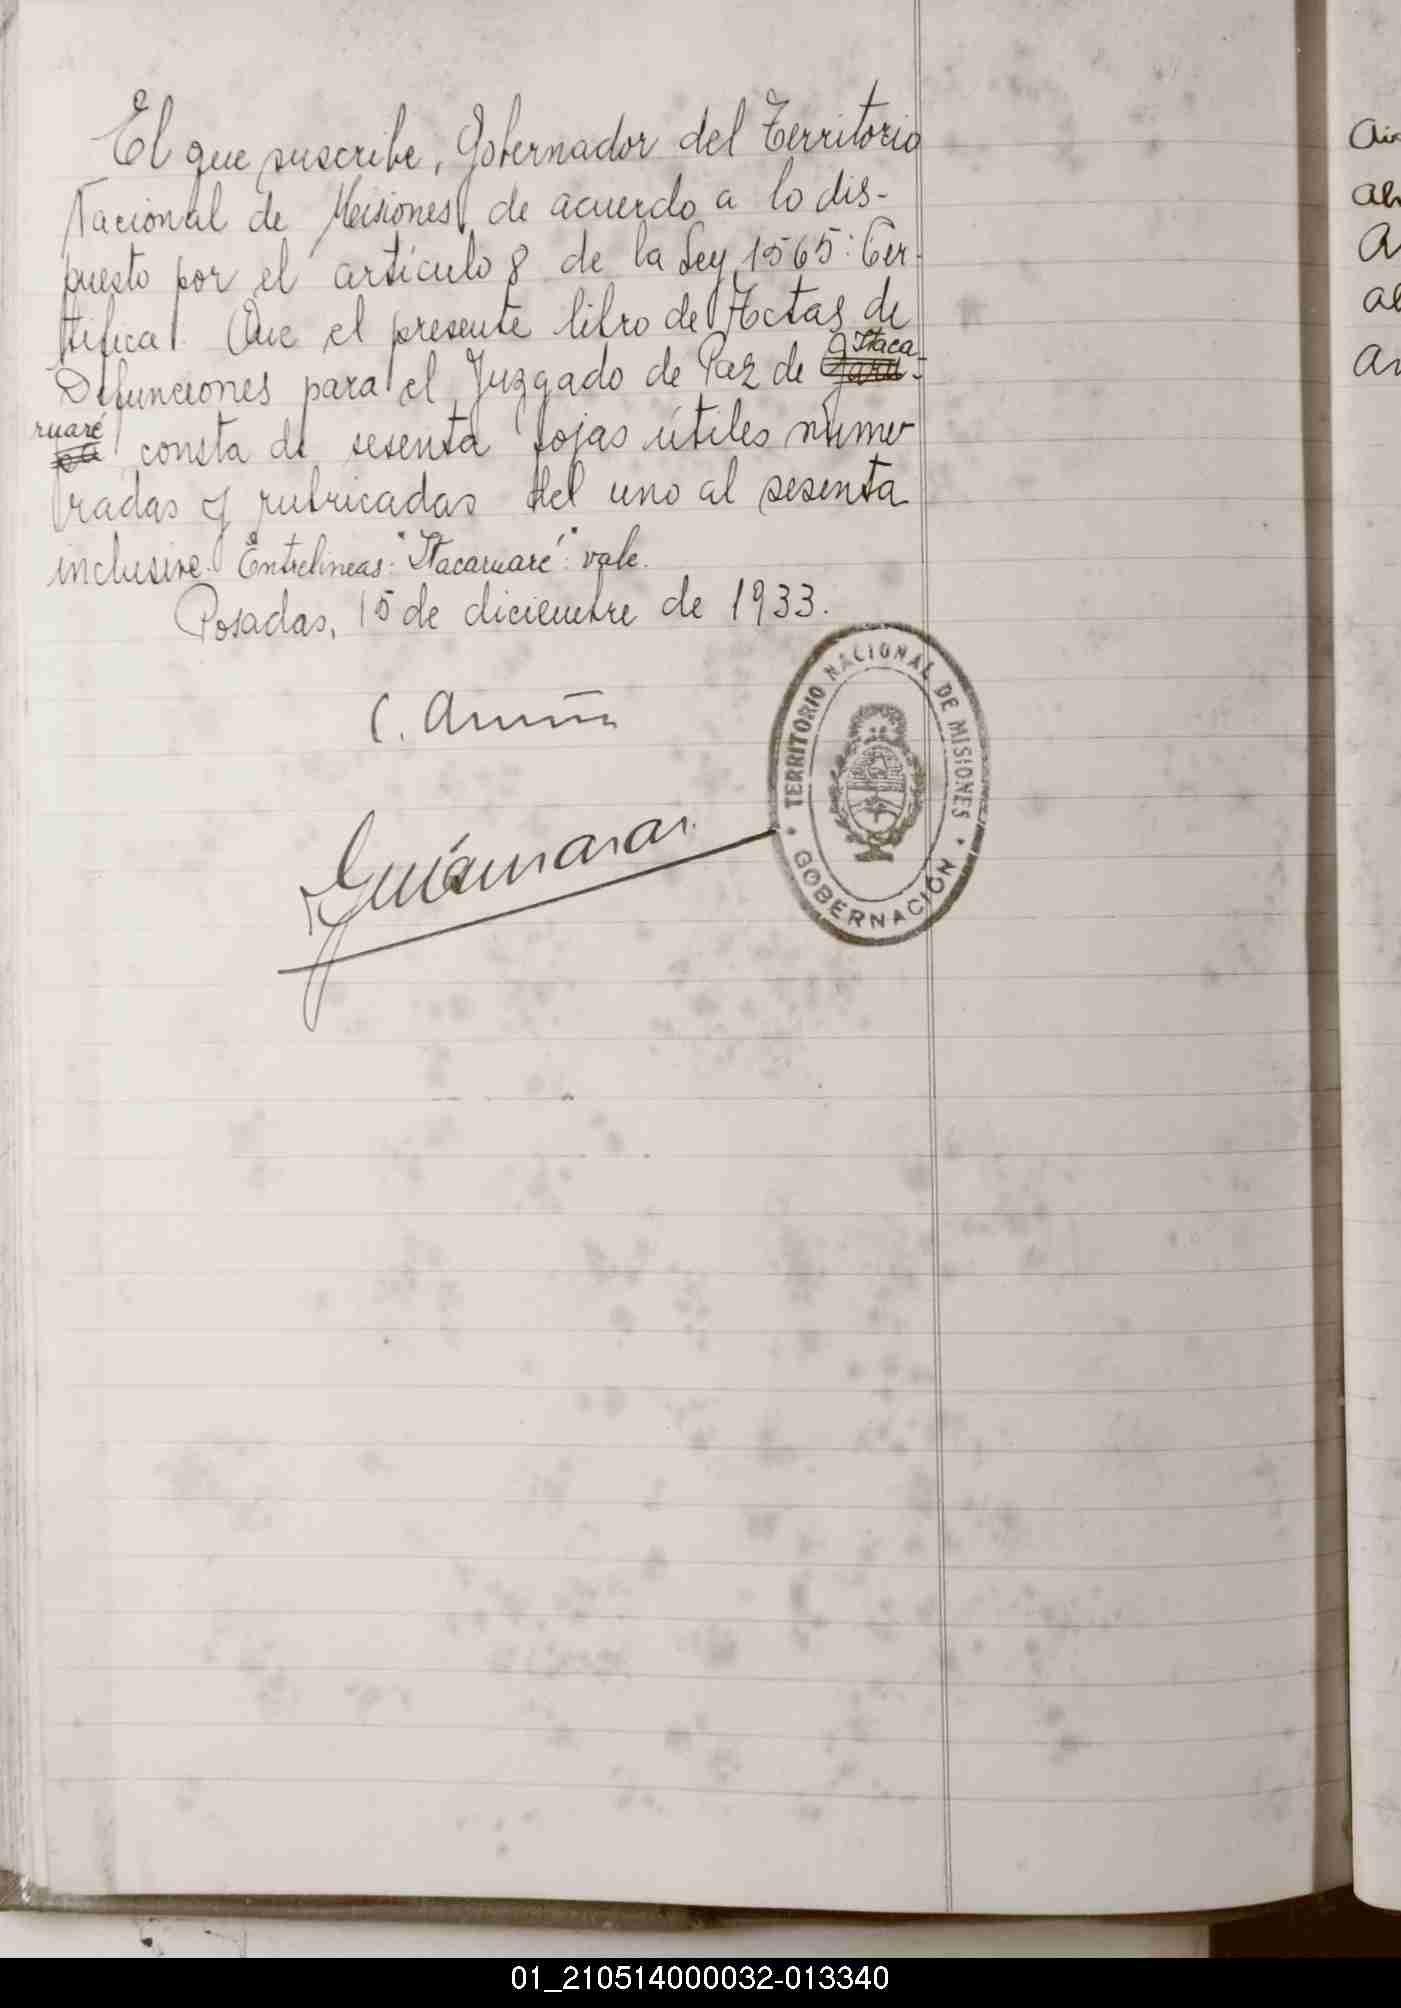 El que suscribe, Gobernador del Territorio
Nacional de Misiones, de acuerdo a lo dis-
puesto por el artículo 8 de la Ley 1565: Cer-
tifica: Que el presente libro de Actas de
Defunciones para el Juzgado de Paz de Itaca-
ruaré consta de sesenta fojas útiles nume-
radas y rubricadas del uno al sesenta
inclusive. Entrelineas: "Itacaruaré": vale.
Posadas, 15 de diciembre de 1933.
TERRITORIO NACIONAL DE MISIONES
GOBERNACIÓN
01_210514000032-013340